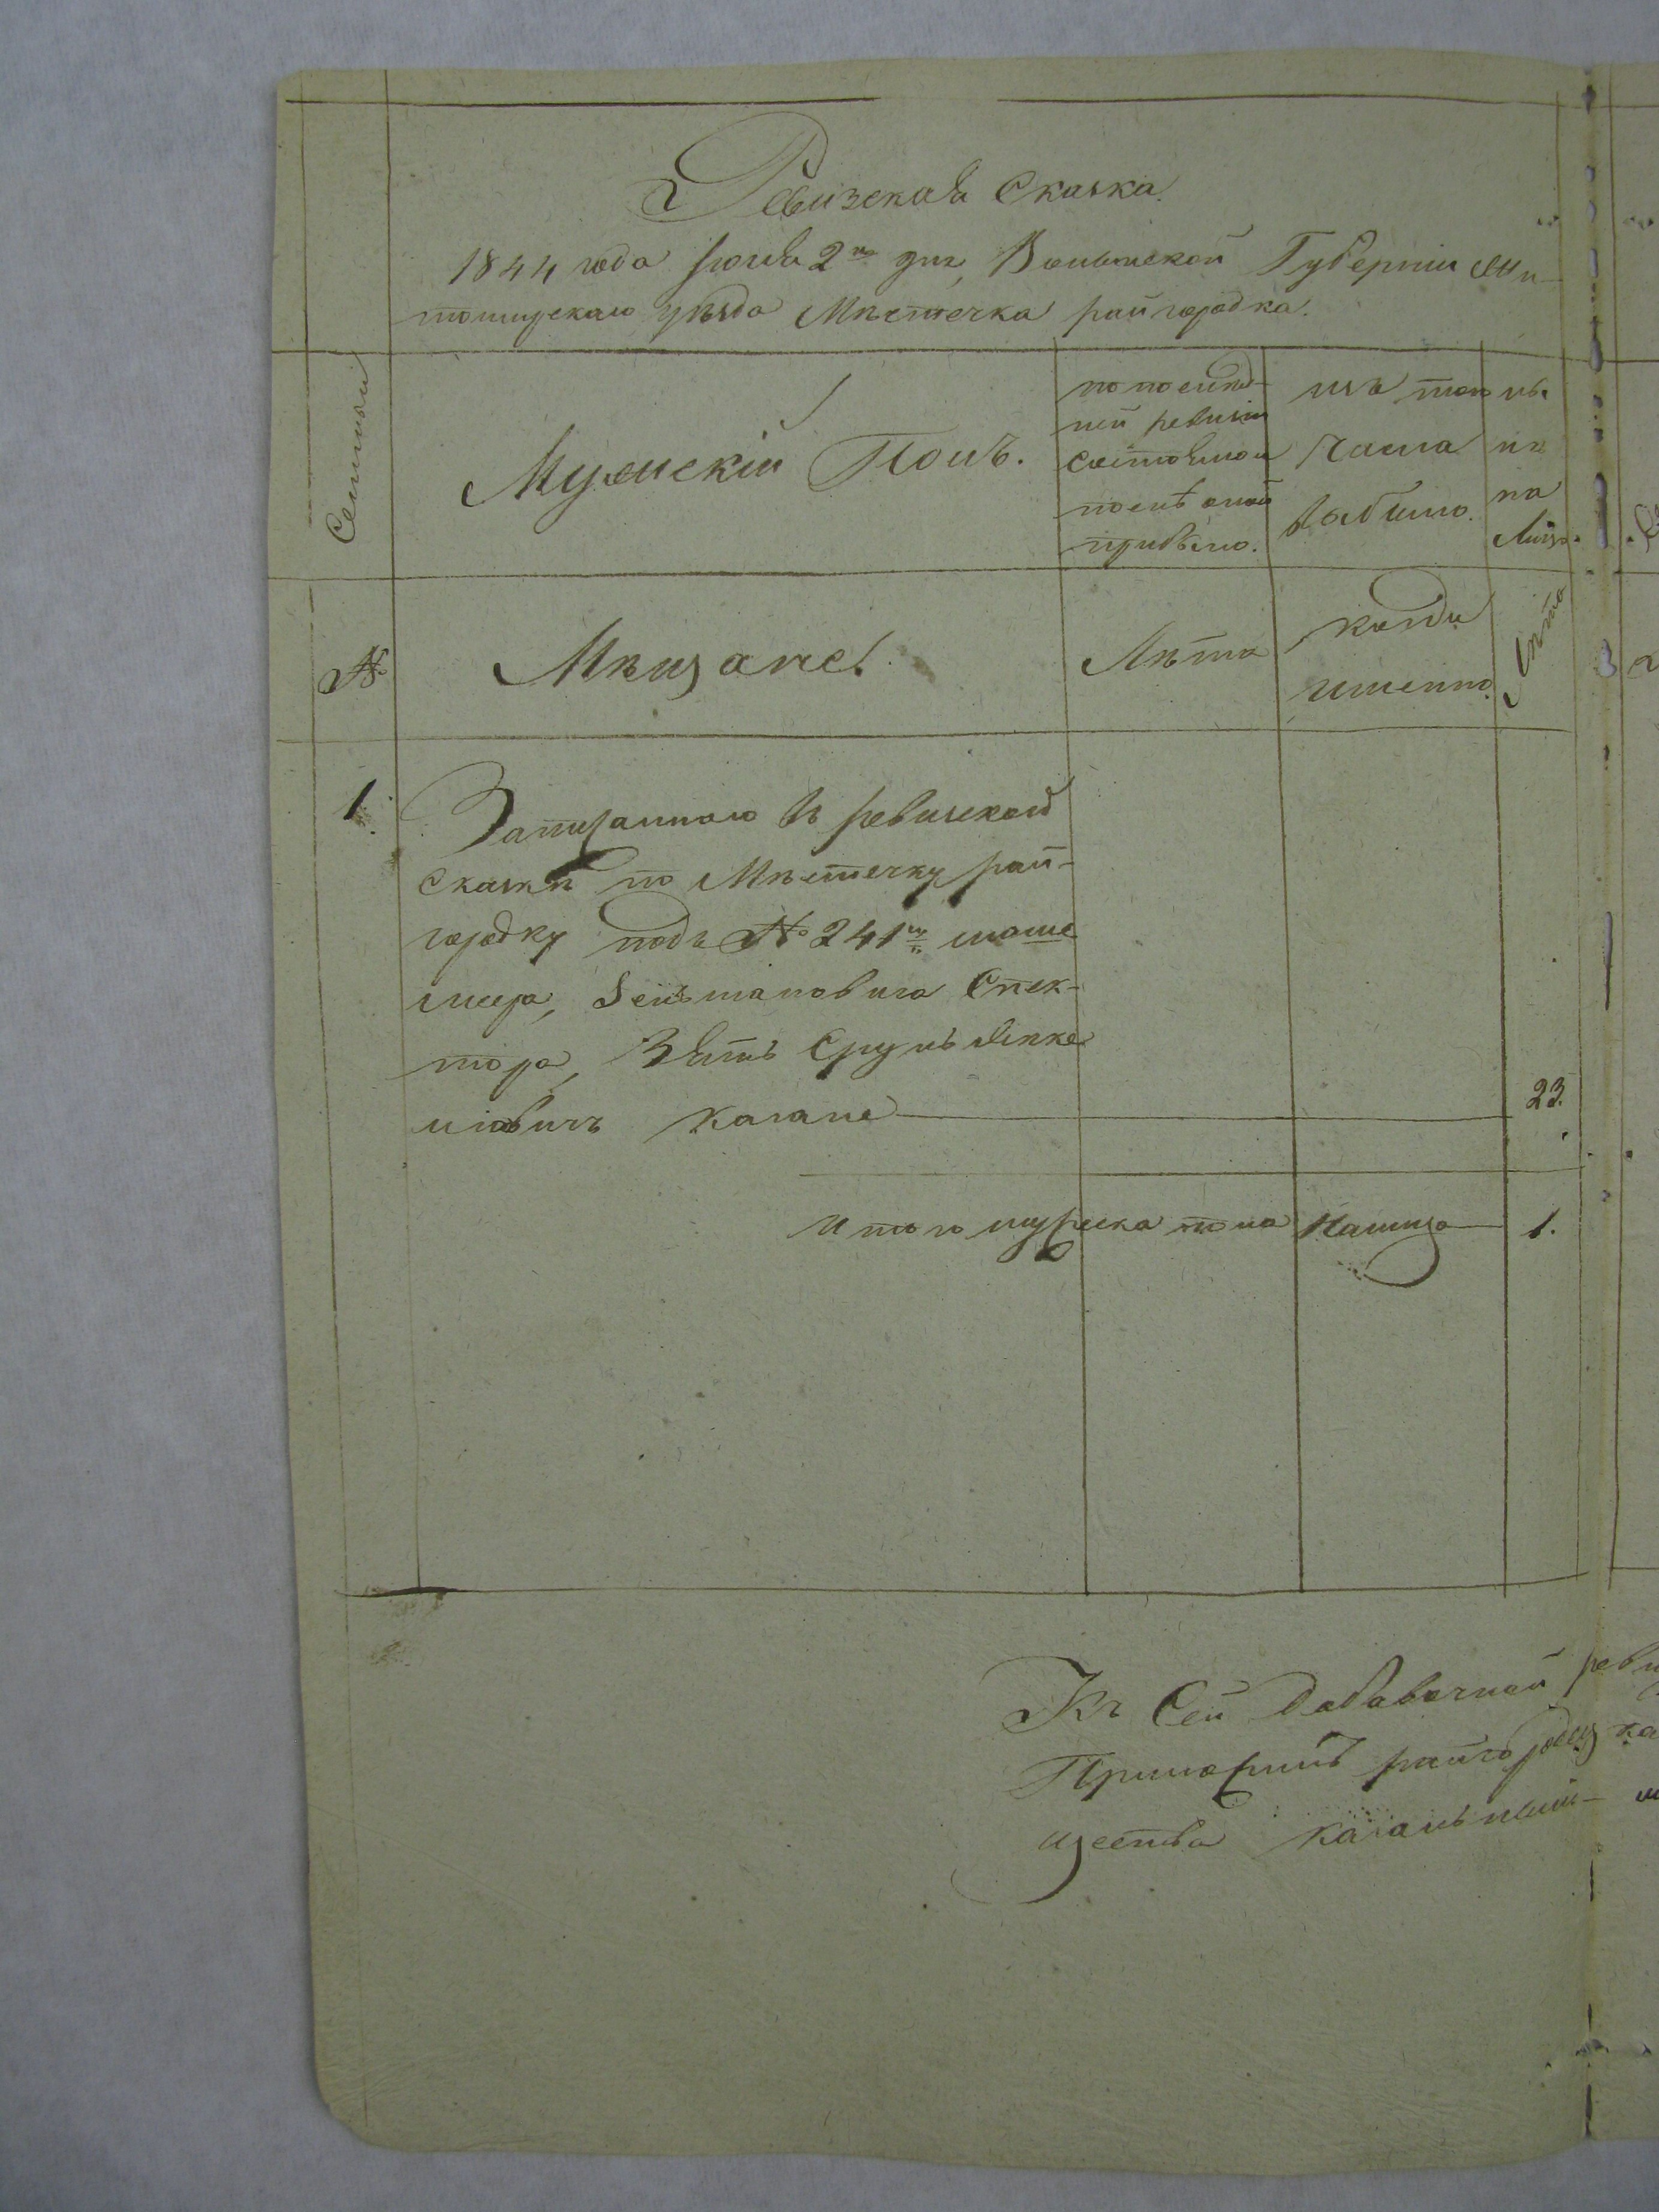 Ревизская Сказка.
1844 года Июля 2го дня, Волынской Губерніи Жи-
томирскаго уѣзда Мѣстечка райгородка.
Семьи
Мужескій Полъ.
по послѣд-
ней ревизіи
состояло и
послѣ оной
прибыло.
изъ того
числа
выбыло.
нъ
нѣ
на
Лицо.
№
Мѣщане.
Лѣта
когда
именно.
Лѣта
1.
Записаннаго въ ревизской
Сказкѣ по Мѣстечку рай-
городку подъ № 241мъ
Спек-
тора, Зять Сруль Янке
лiовичъ Кагане
23.
Итого мужеска пола Налицо
1.
Къ Сей Добавочной реви
райгородец ка
щества Кагальный